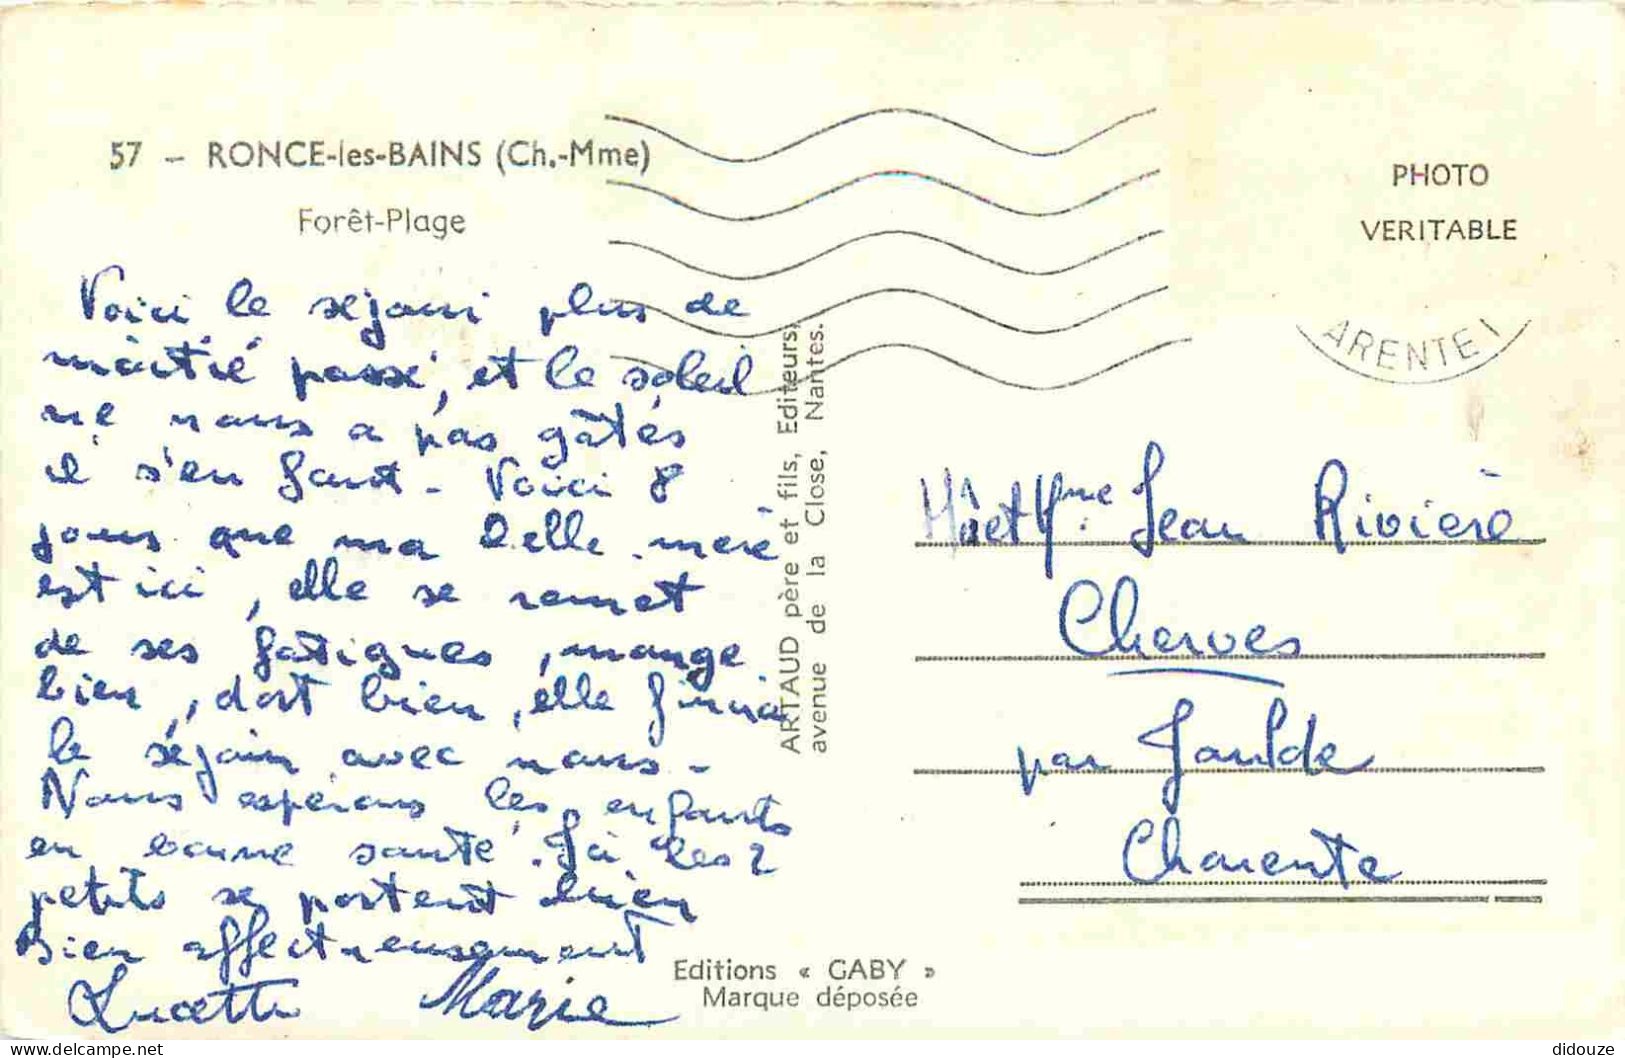 57 – RONCE-les-BAINS (Ch.-Mme)
Forêt-Plage
PHOTO
VERITABLE
ARENTE
Voici le séjour plus de
moitié passé, et le soleil
ne nous a pas gâtés
il s'en faut - Voici 8
jours que ma belle-mère
est ici, elle se remet
de ses fatigues, mange
bien, dort bien, elle finira
le séjour avec nous -
Nous espérons les enfants
en bonne santé. Ici les 2
petits se portent bien
Bien affectueusement
Lucette Marie
ARTAUD père et fils, Editeurs,
avenue de la Close, Nantes.
Mr et Mme Jean Rivière
Cherves
par
Charente
Editions « GABY »
Marque déposée
delcampe.net
didouze